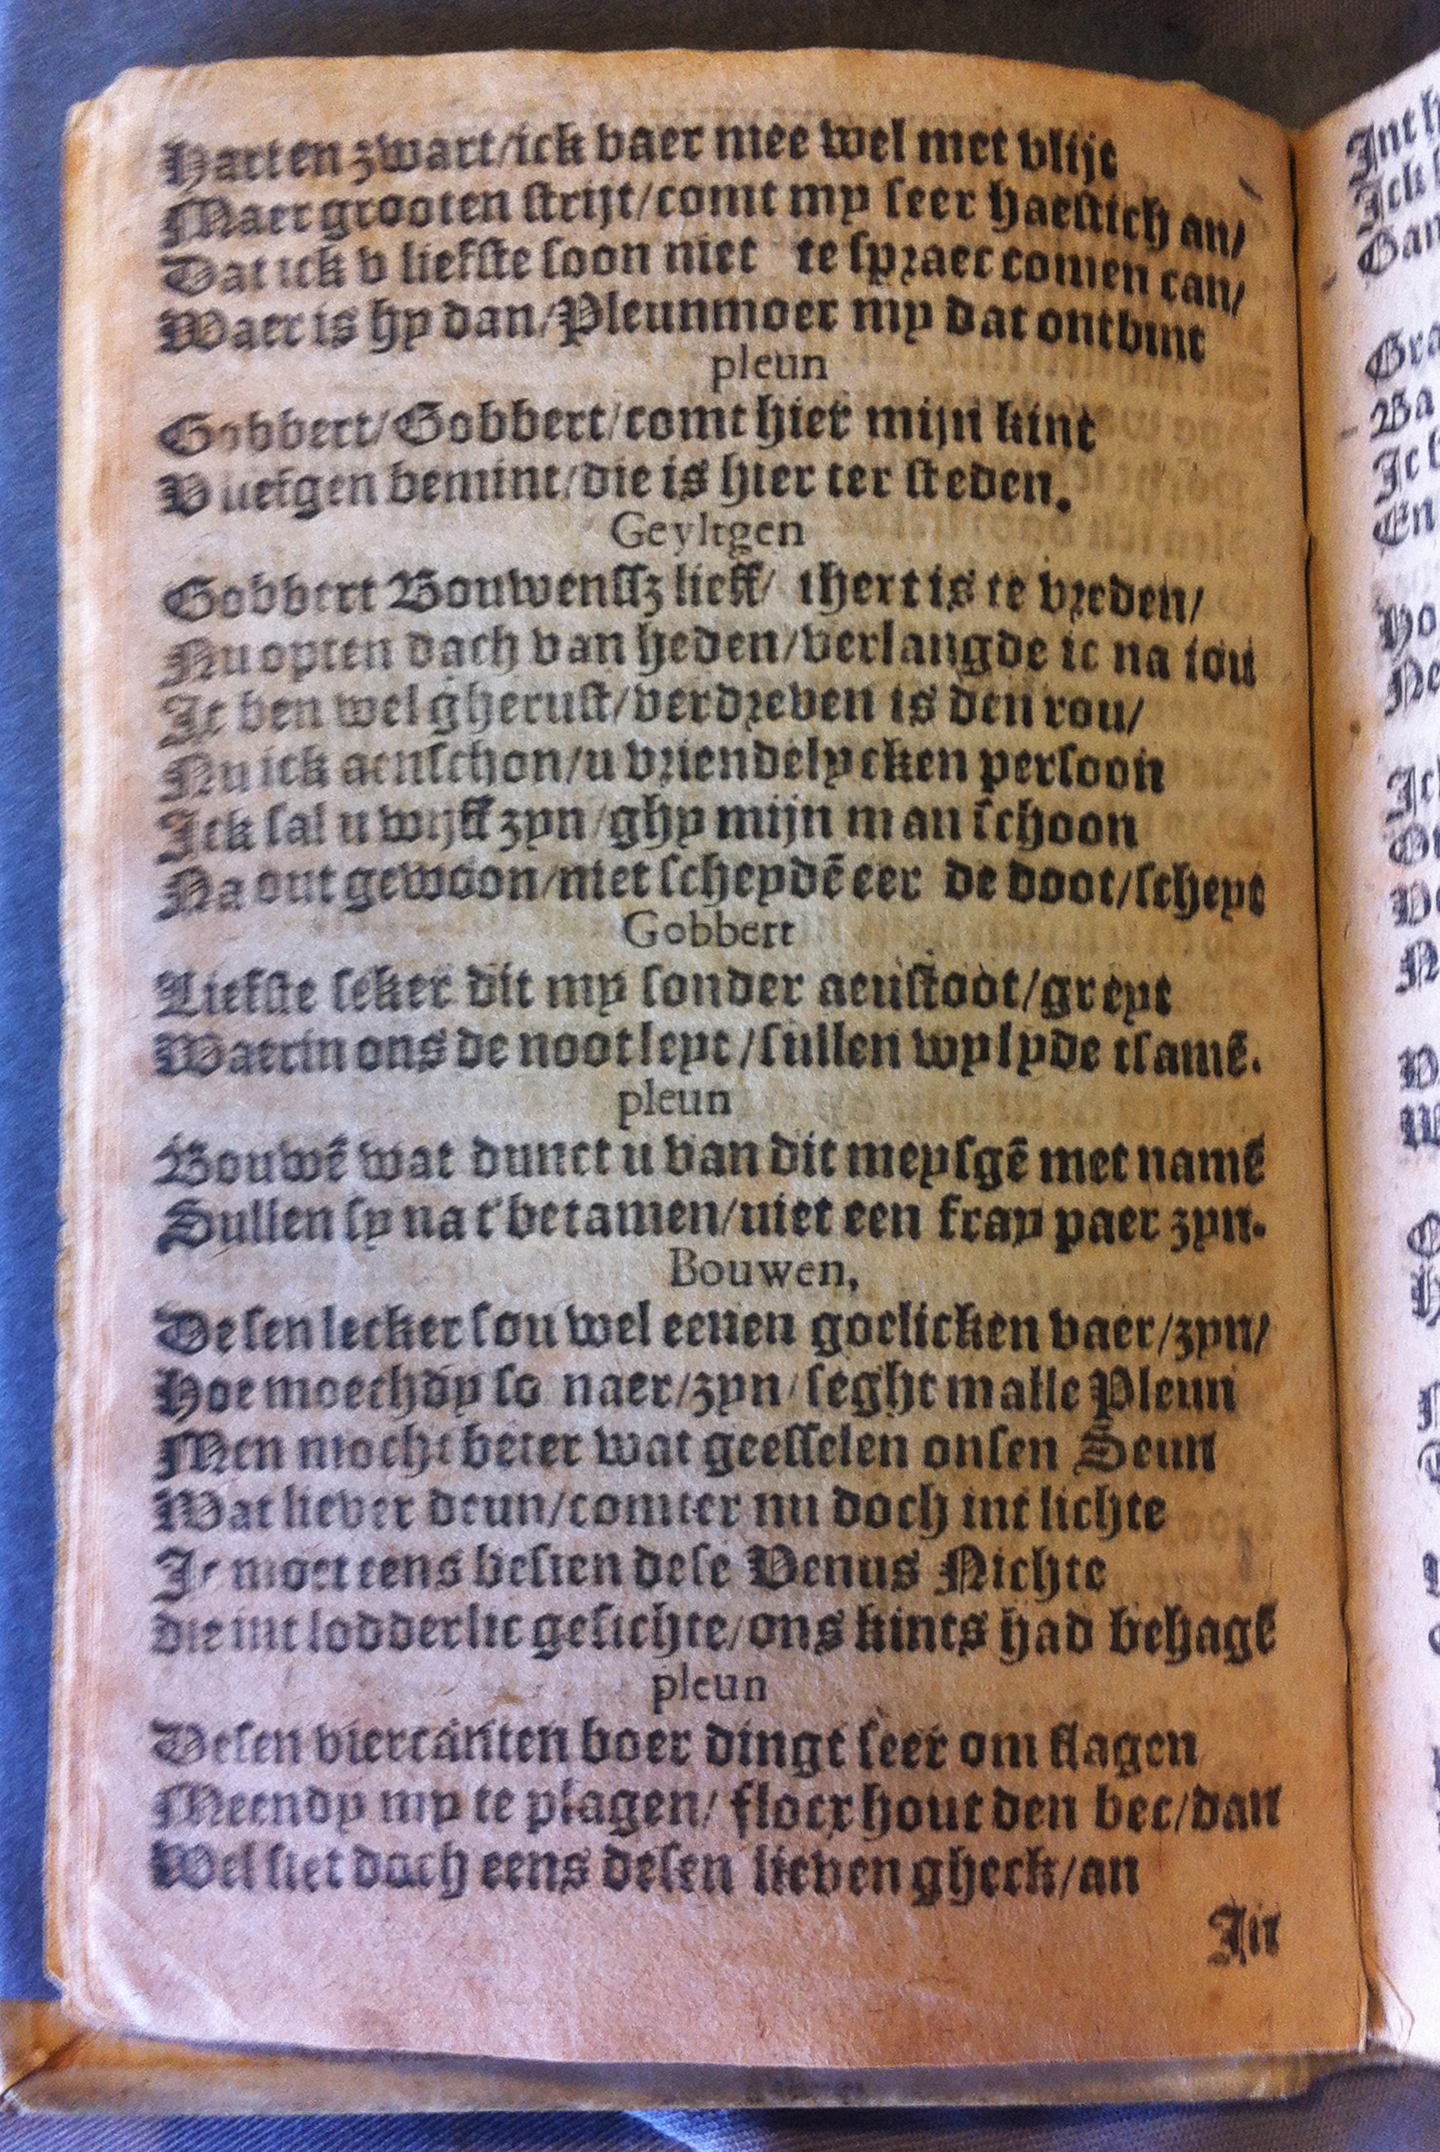 Harten zwart/ick vaer mee wel met vlijt
Maer grooten strijt/comt my seer haestich an/
Dat ick v liefste soon niet te spraec comen can/
Waer is hy dan/Pleunmoer my dat ontbint
pleun
Gobbert/Gobbert/comt hier mijn kint
V liefgen bemint/die is hier ter steden.
Geyltgen
Gobbert Bouwenssz lieff/ thert is te vreden/
Nu opten dach van heden/verlangde ic na iou
Ic ben wel gherust/verdreven is den rou/
Nu ick aenschon/u vriendelycken persoon
Ick sal u wijff zyn/ghy mijn man schoon
Na out gewoon/niet scheydē eer de doot/scheyt
Gobbert
Liefste seker dit my sonder aenstoot/greyt
Waerin ons de noot leyt/sullen wy lyde tsamē.
pleun
Bouwē wat dunct u van dit meysgē met namē
Sullen sy na t'betamen/niet een fray paer zyn.
Bouwen,
Desen lecker sou wel eenen goelicken vaer/zyn/
Hoe moechdy so naer/zyn/seght malle Pleun
Men mocht beter wat geesselen onsen Seun
Wat liever deun/comter nu doch int lichte
Ic moet eens besien dese Venus Nichte
die int lodderlic gesichte/ons kints had behagē
pleun
Desen viercanten boer dingt seer om slagen
Meendy my te plagen/ flocx hout den bec/dan
Wel siet doch eens desen lieven gheck/an
Int
Int
Ick